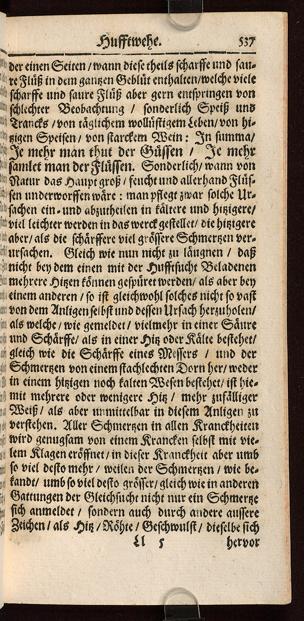 Hufftwehe. 537
der einen Seiten / wann diese theils scharffe und sau-
re Flüß in dem gantzen Geblüt enthalten / welche viele
scharffe und saure Flüß aber gern entspringen von
schlechter Beobachtung / sonderlich Speiß und
Trancks / von täglichem wollüstigem Leben / von hi-
tzigen Speisen / von starckem Wein: In summa /
Je mehr man thut der Güssen / Je mehr
samlet man der Flüssen. Sonderlich / wann von
Natur das Haupt groß / feucht und allerhand Flüs-
sen underworffen wäre: man pflegt zwar solche Ur-
sachen ein- und abzutheilen in kältere und hitzigere /
viel leichter werden in das werck gestellet / die hitzigere
aber / als die schärffere viel grössere Schmertzen ver-
ursachen. Gleich wie nun nicht zu läugnen / daß
nicht bey dem einen mit der Hufftsucht Beladenen
mehrere Hitzen können gespüret werden / als aber bey
einem anderen / so ist gleichwohl solches nicht so vast
von dem Anligen selbst und dessen Ursach herzuholen /
als welche / wie gemeldet / vielmehr in einer Säure
und Schärffe / als in einer Hitz oder Kälte bestehet /
gleich wie die Schärffe eines Messers / und der
Schmertzen von einem stachlechten Dorn her / weder
in einem hitzigen noch kalten Wesen bestehet / ist hie-
mit mehrere oder wenigere Hitz / mehr zufälliger
Weiß / als aber unmittelbar in diesem Anligen zu
verstehen. Aller Schmertzen in allen Kranckheiten
wird genugsam von einem Krancken selbst mit vie-
lem Klagen eröffnet / in dieser Kranckheit aber umb
so viel desto mehr / weilen der Schmertzen / wie be-
kandt / umb so viel desto grösser / gleich wie in anderen
Gattungen der Gleichsucht nicht nur ein Schmertze
sich anmeldet / sondern auch durch andere aussere
Zeichen / als Hitz / Röhte / Geschwulst / dieselbe sich
Ll 5 hervor